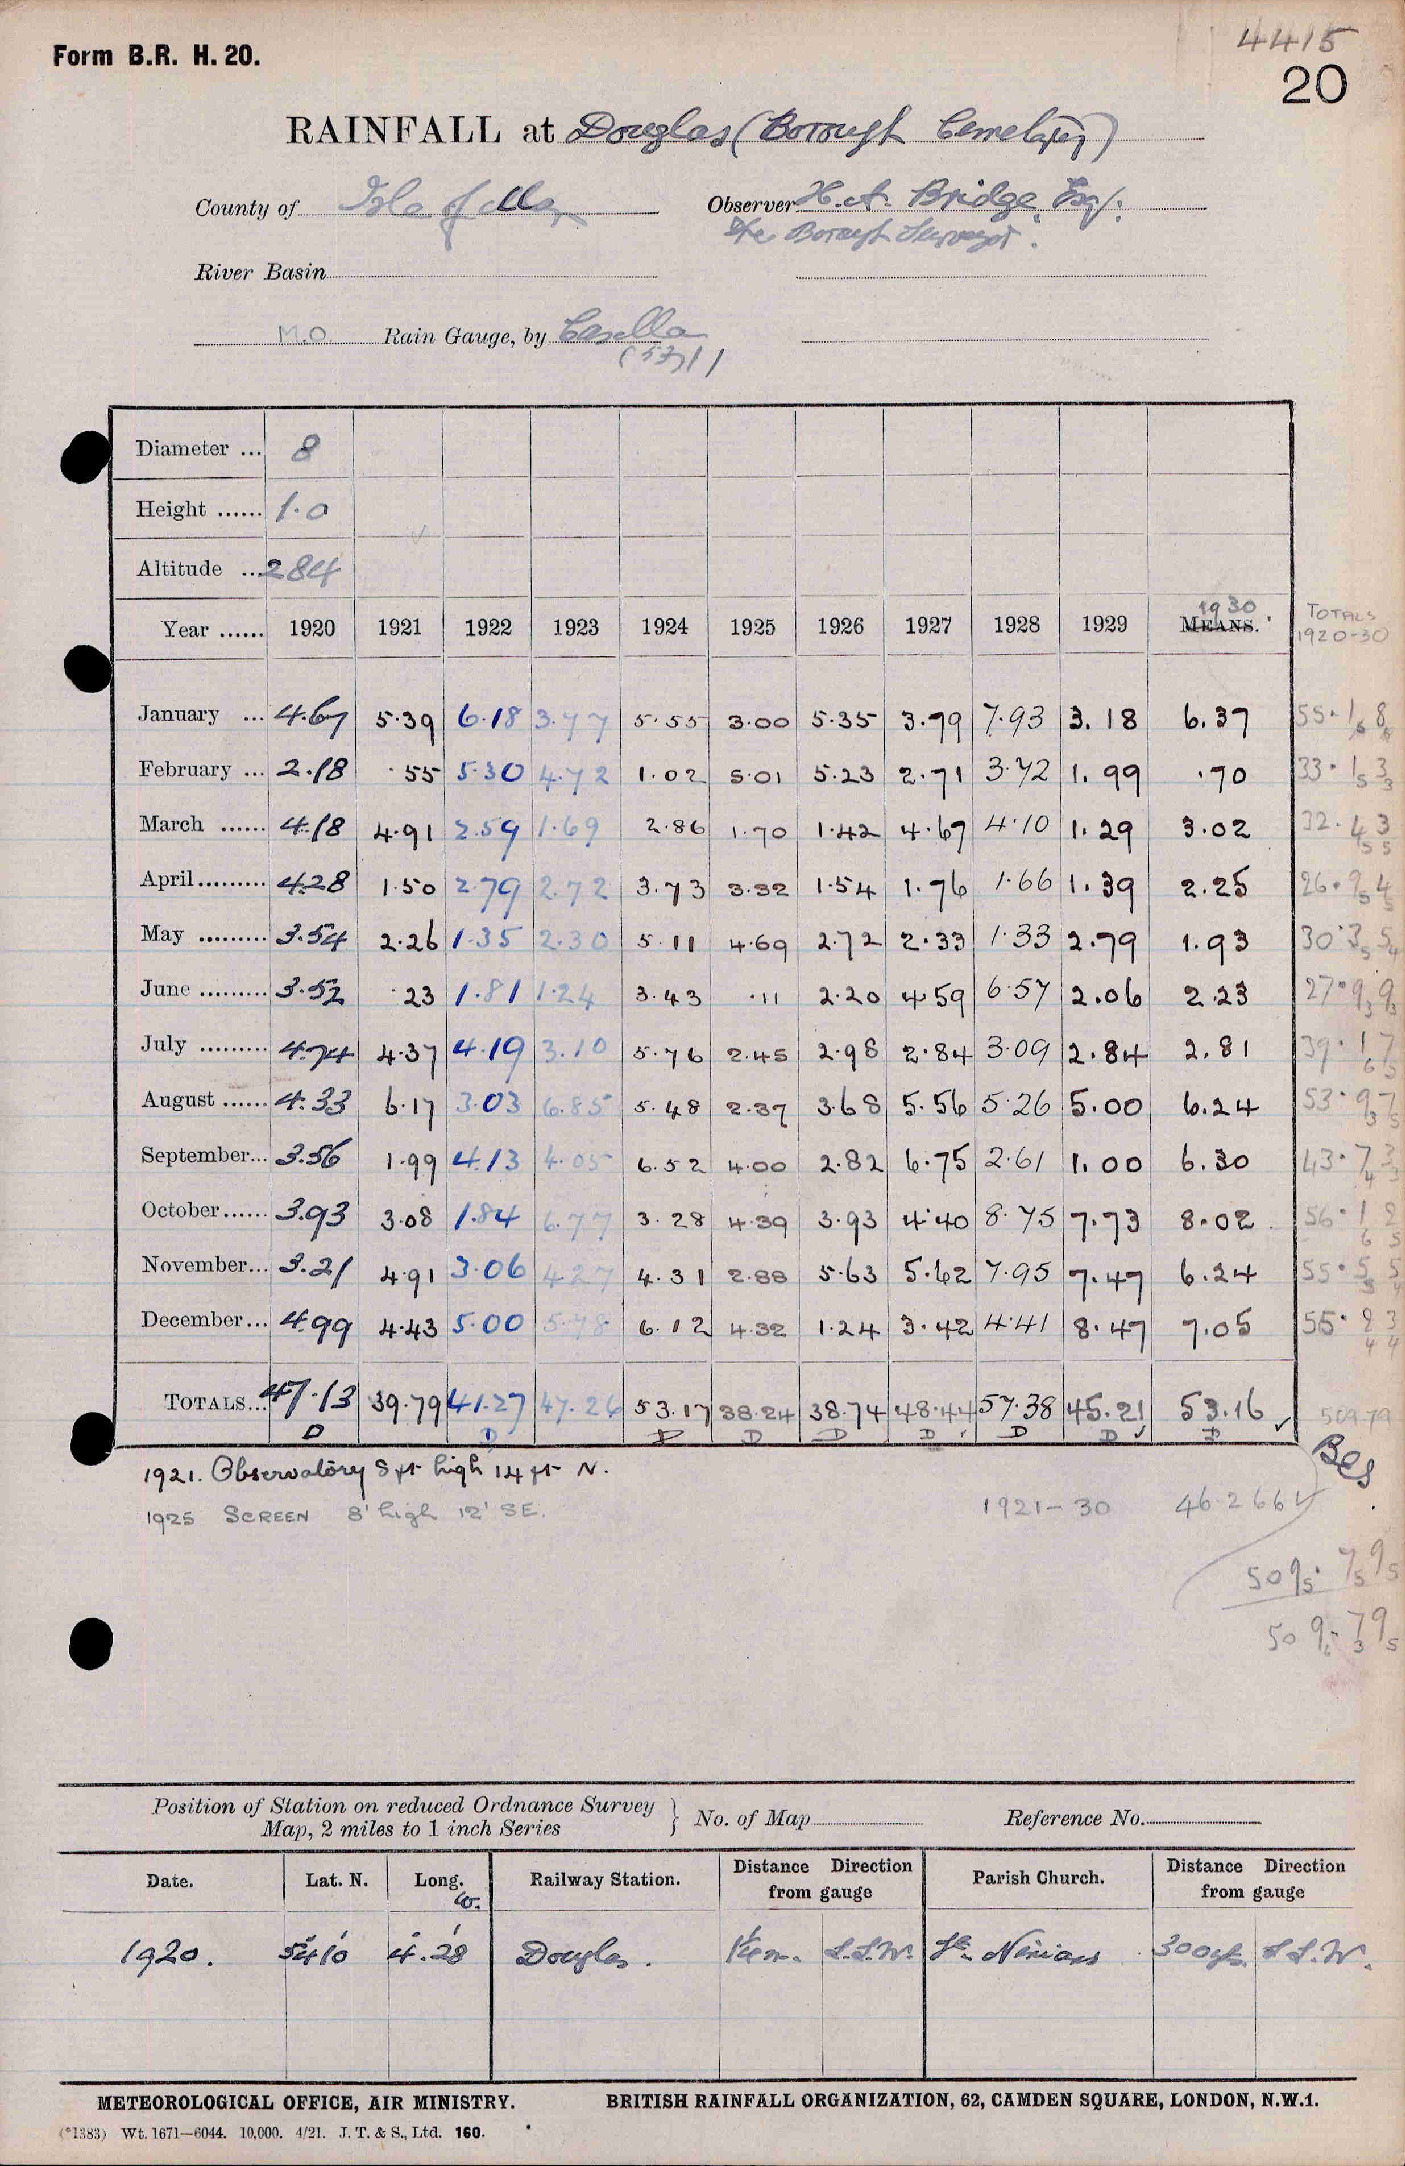 4415
Form B.R. H. 20.
20
RAINFALL at Douglas (Borough Cemetery)
County of Isle of Man Observer H. A. Bridge, Esq:
The Borough Surveyor.
River Basin
M.O Rain Gauge, by Casella
Diameter ... 8
Height ...... 1.0
Altitude ... 284
Year ...... 1920 1921 1922 1923 1924 1925 1926 1927 1928 1929 MEANS. 1930 TOTALS 1920-30
January ... 4.67 5.39 6.18 3.77 5.55 3.00 5.35 3.79 7.93 3.18 6.37 55.18
February ... 2.18 .55 5.30 4.72 1.02 5.01 5.23 2.71 3.72 1.99 .70 33.13
March ...... 4.18 4.91 2.59 1.69 2.86 1.70 1.42 4.67 4.10 1.29 3.02 32.43
April ......... 4.28 1.50 2.79 2.72 3.73 3.32 1.54 1.76 1.66 1.39 2.25 26.94
May ......... 3.54 2.26 1.35 2.30 5.11 4.69 2.72 2.33 1.33 2.79 1.93 30.35
June ......... 3.52 .23 1.81 1.24 3.43 .11 2.20 4.59 6.57 2.06 2.23 27.99
July ......... 4.74 4.37 4.19 3.10 5.76 2.45 2.98 2.84 3.09 2.84 2.81 39.17
August ...... 4.33 6.17 3.03 6.85 5.48 2.37 3.68 5.56 5.26 5.00 6.24 53.97
September... 3.56 1.99 4.13 4.05 6.52 4.00 2.82 6.75 2.61 1.00 6.30 43.73
October ...... 3.93 3.08 1.84 6.77 3.28 4.39 3.93 4.40 8.75 7.73 8.02 56.12
November... 3.21 4.91 3.06 4.27 4.31 2.88 5.63 5.62 7.95 7.47 6.24 55.55
December... 4.99 4.43 5.00 5.78 6.12 4.32 1.24 3.42 4.41 8.47 7.05 55.23
TOTALS... 47.13 39.79 41.27 47.26 53.17 38.24 38.74 48.44 57.38 45.21 53.16 509.79
D D D D D D D D D
1921. Observatory 8 ft high 14 ft N.
1925 SCREEN 8' high 12' SE.
1921-30 46.266
509.79
509.79
Position of Station on reduced Ordnance Survey Map, 2 miles to 1 inch Series } No. of Map Reference No.
Date. Lat. N. Long. W. Railway Station. Distance Direction from gauge Parish Church. Distance Direction from gauge
1920. 54° 10' 4° 28' Douglas. 1¼ m. S.S.W. St. Ninians 300 yds S.S.W.
METEOROLOGICAL OFFICE, AIR MINISTRY. BRITISH RAINFALL ORGANIZATION, 62, CAMDEN SQUARE, LONDON, N.W.1.
(*1383) Wt. 1671—6044. 10,000. 4/21. J. T. & S., Ltd. 160.